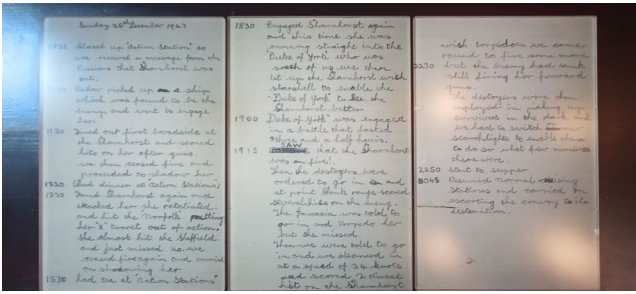 Sunday 26th December 1943
Closed up "action Station" as
we received a message from the
Russians that Sharnhorst was
out.
Radar picked up a ship
which was found to be the
enemy and went to engage
her
1130 Fired our first broadside at
the Sharnhorst and scored
hits on her after guns.
we then ceased fire and
proceeded to shadow her
1220 (had dinner at Action Stations)
Found Sharnhorst again and
attacked her she retaliated
and hit the Norfolk putting
her "X" turret out of action.
she almost hit the Sheffield
and just missed us. we
ceased fire again and carried
on shadowing her
1530 had tea at "Action Stations"
1830 Engaged Sharnhorst again
and this time she was
running straight into the
"Duke of York" who was
south of us we then
lit up the Sharnhorst with
starshell to enable the
"Duke of York" to see the
Sharnhorst better
1900 "Duke of York" was engaged
in a battle that lasted
three and a half hours.
1915 SAW that the Sharnhorst
was on fire!.
Then the destroyers were
ordered to go in and
at point blank range scored
several hits on the enemy.
The Jamaica was told to
go in and torpedo her
but she missed
Then we were told to go
in and we steamed in
at a speed of 34 knots
and scored 2 direct
hits on the Sharnhorst
with torpedoes we came
round to fire some more
2230 but the enemy had sunk
still firing her forward
guns.
The destroyers were then
employed in picking up
survivors in the dark and
we had to switch on our
searchlights to enable them
to do so what few survivors
there were.
2250 Went to supper
0045 Resumed normal cruising
stations and carried on
escorting the convoy to its
destination.